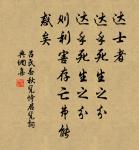 达士者
达乎死生之分
达乎死生之分
则利害存亡弗能
惑矣
吕氏春秋览恃君览